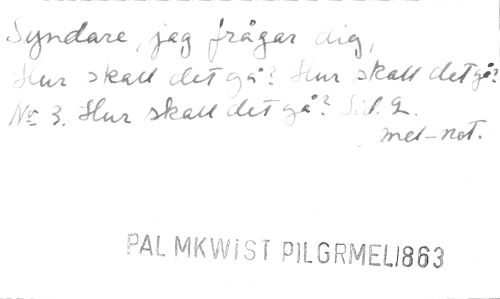 Syndare, jag frågar dig,
Hur skall det gå? Hur skall det gå?
No 3. Hur skall det gå? Sid. 2.
mel-not.
PALMKWIST PILGRMEL 1863